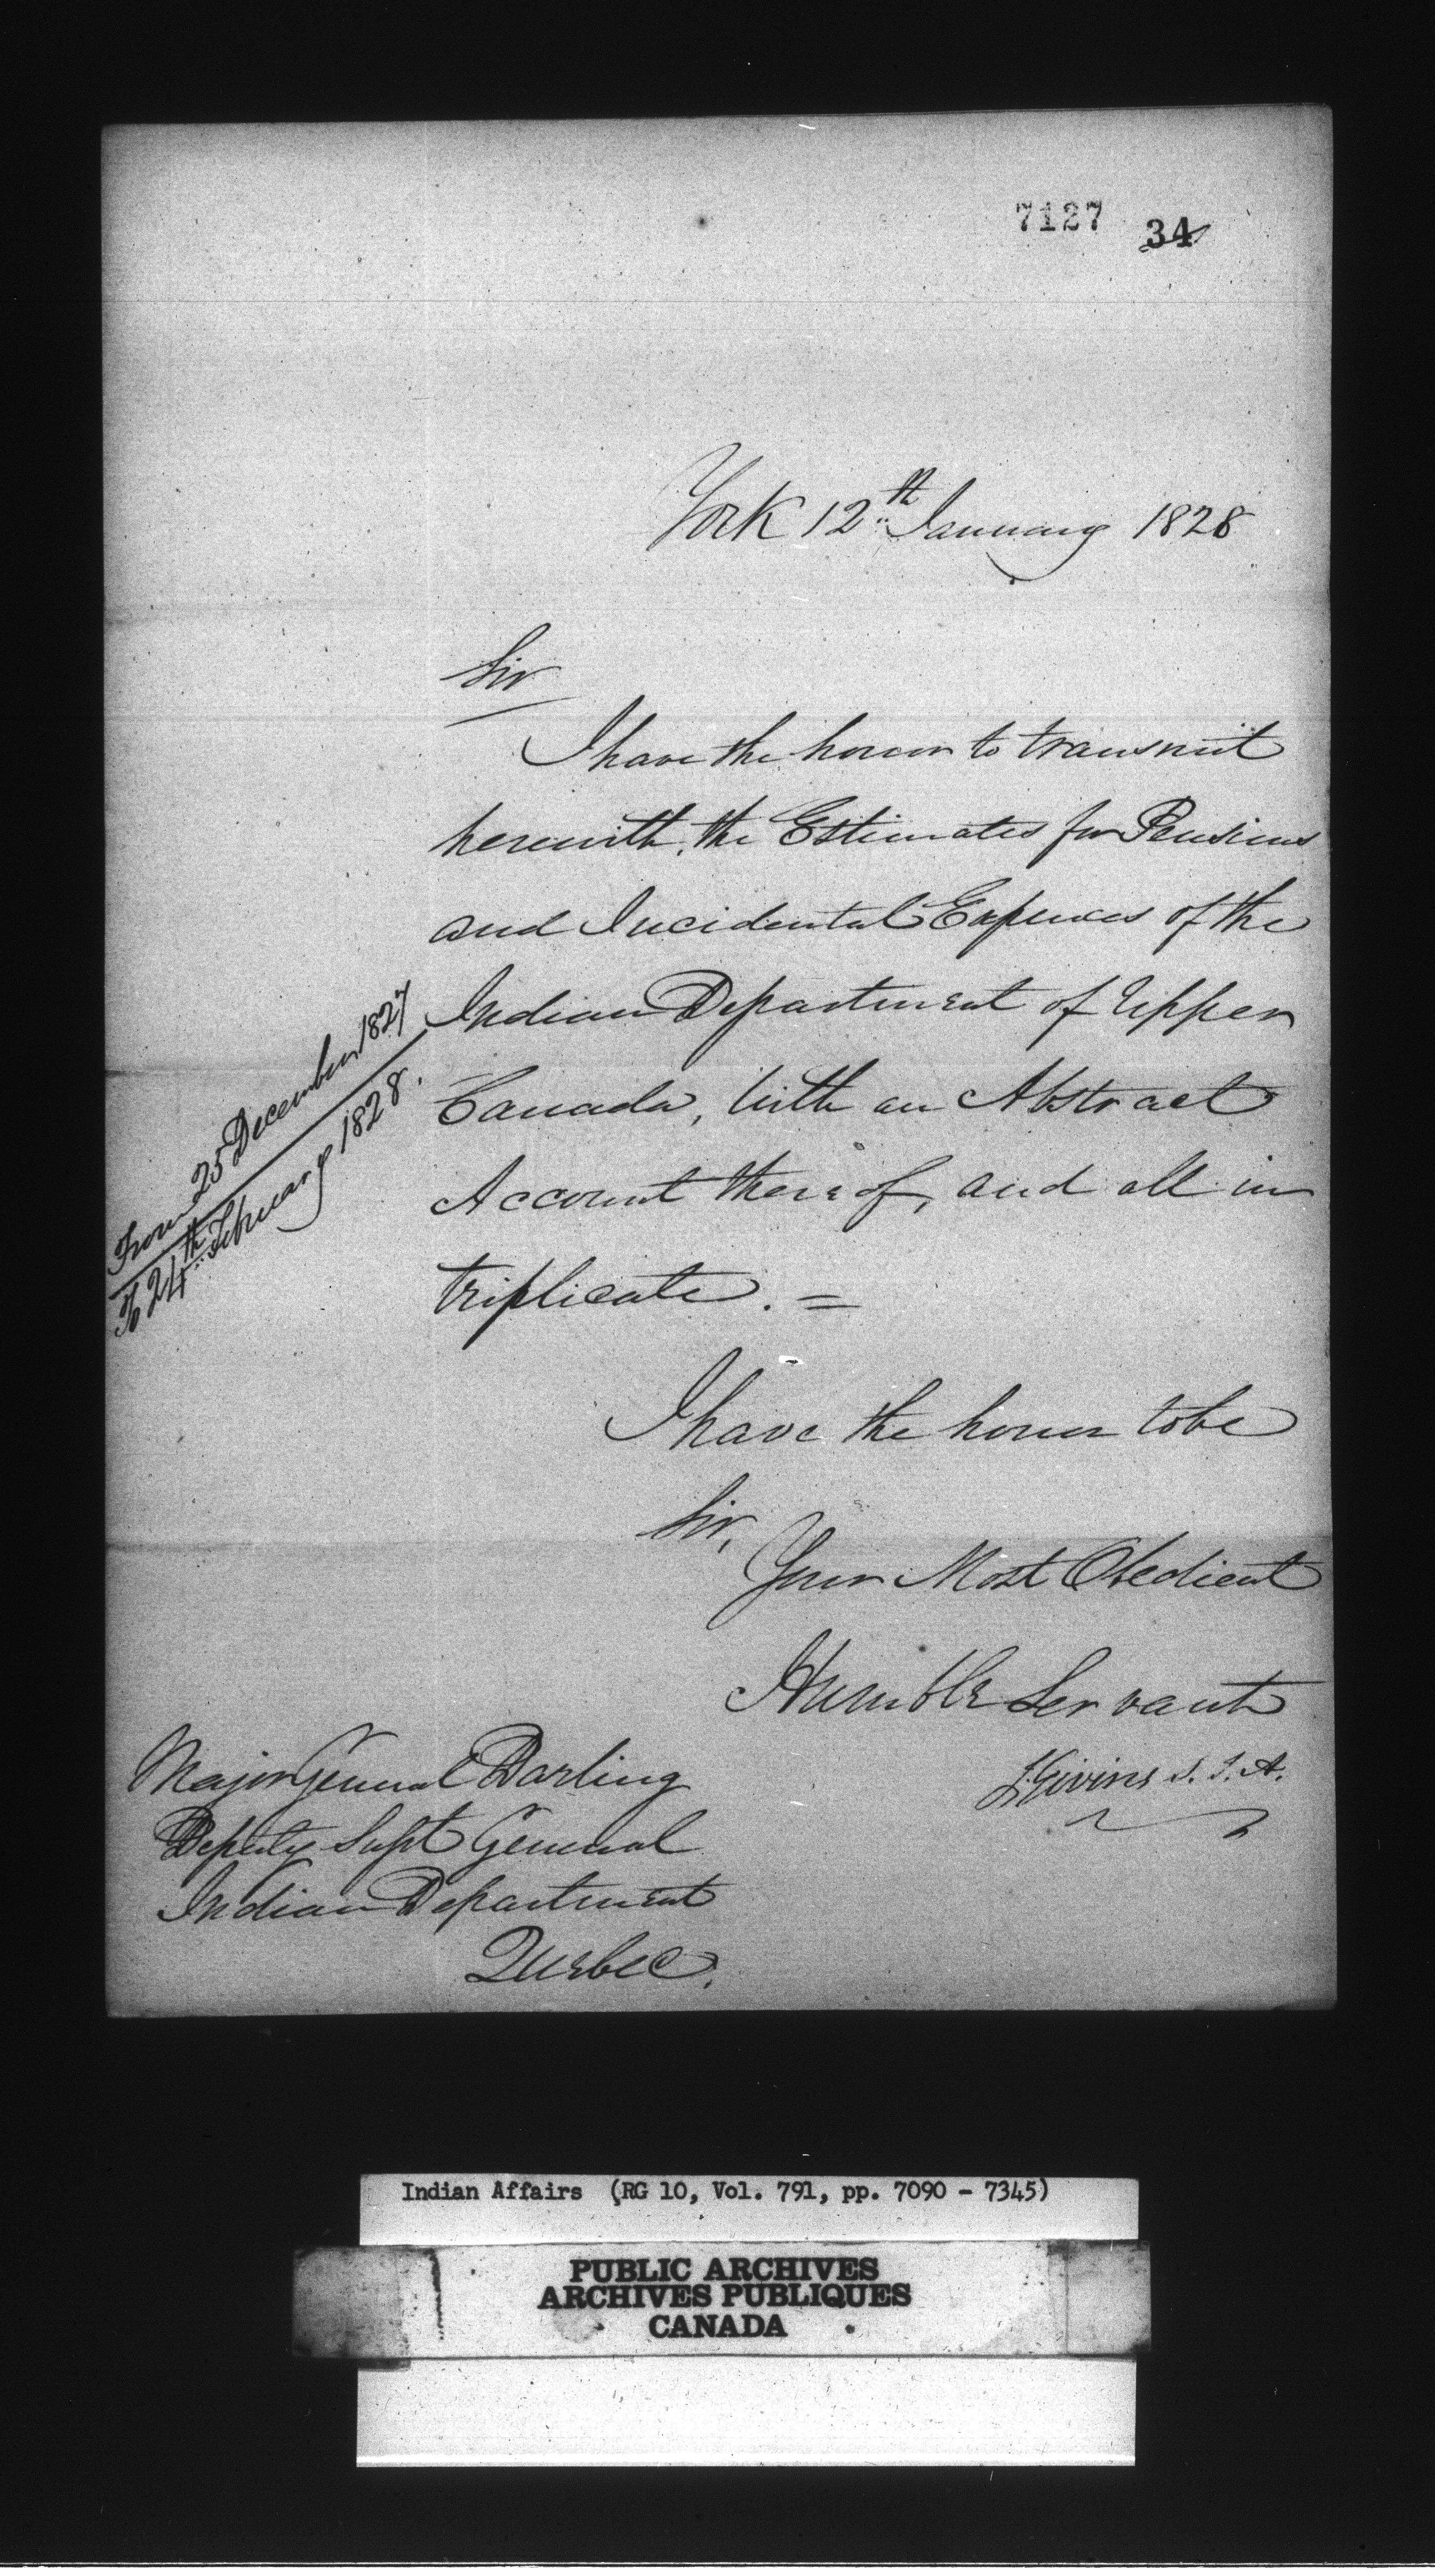 7127 34
York 12th January 1828
Sir
I have the honor to transmit
herewith, the Estimates for Pensions
and Incidental Expences of the
Indian Department of Upper
Canada, With an Abstract
Account thereof, and all in
triplicate. =
From 25 December 1827
To 24th February 1828.
I have the honor to be
Sir,
Your Most Obedient
Humble Servant
J. Givins S. I. A.
Major General Darling
Deputy Supt General
Indian Department
Quebec.
Indian Affairs (RG 10, Vol. 791, pp. 7090 - 7345)
PUBLIC ARCHIVES
ARCHIVES PUBLIQUES
CANADA